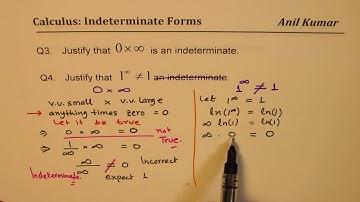 Calculus: Indeterminate Forms
Anil Kumar
Q3. Justify that 0×∞ is an indeterminate.
Q4. Justify that 1^∞ ≠ 1 an indeterminate.
0 × ∞
v.v. small × v.v. large
→ anything times zero = 0
Let it be true
⇒ 0 × ∞ = 0
not True.
⇒ 1/∞ × ∞ = 0
∞/∞ ≠ 0 Incorrect
Indeterminate. expect 1
1^∞ ≠ 1
Let 1^∞ = 1
ln(1^∞) = ln(1)
∞ ln(1) = ln(1)
∞ · 0 = 0